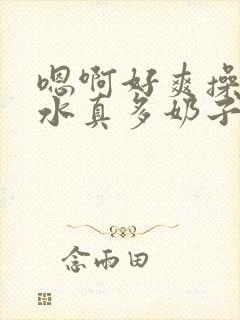 嗯啊好爽操
水真多奶子
念雨田